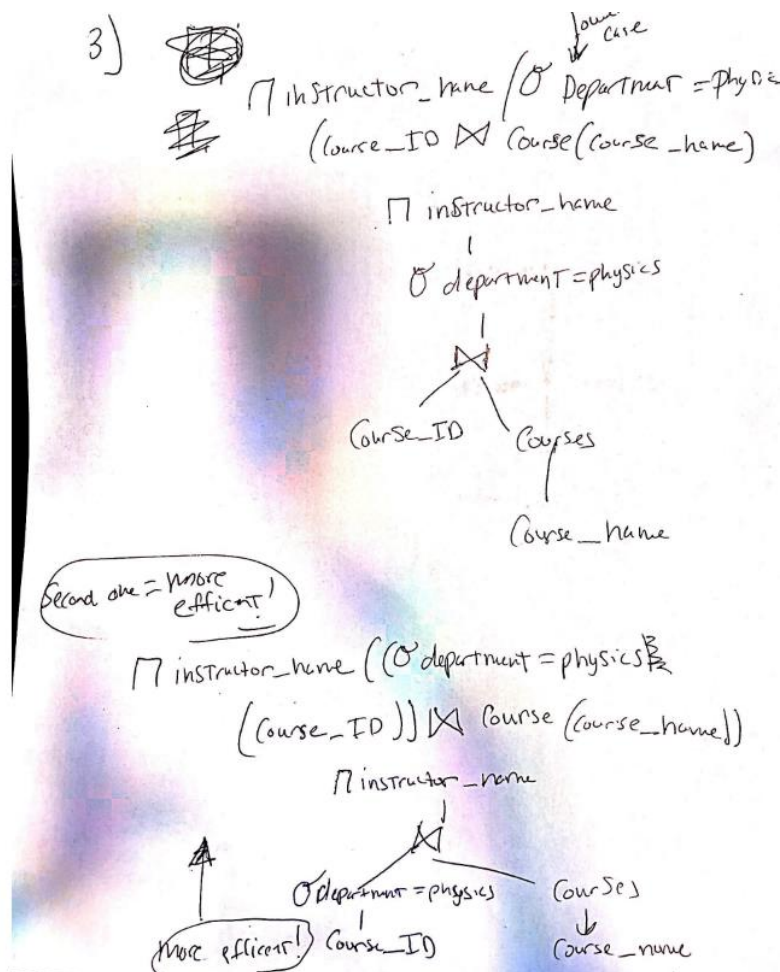 3)
lower case
Π instructor_name (σ Department = Physic
(Course_ID ⋈ Course(Course_name)
Π instructor_name
σ department = physics
⋈
Course_ID Courses
Course_name
Second one = more
efficent!
Π instructor_name ((σ department = physics
(Course_ID)) ⋈ Course (course_name))
Π instructor_name
⋈
σ department = physics Courses
More efficent! Course_ID Course_name